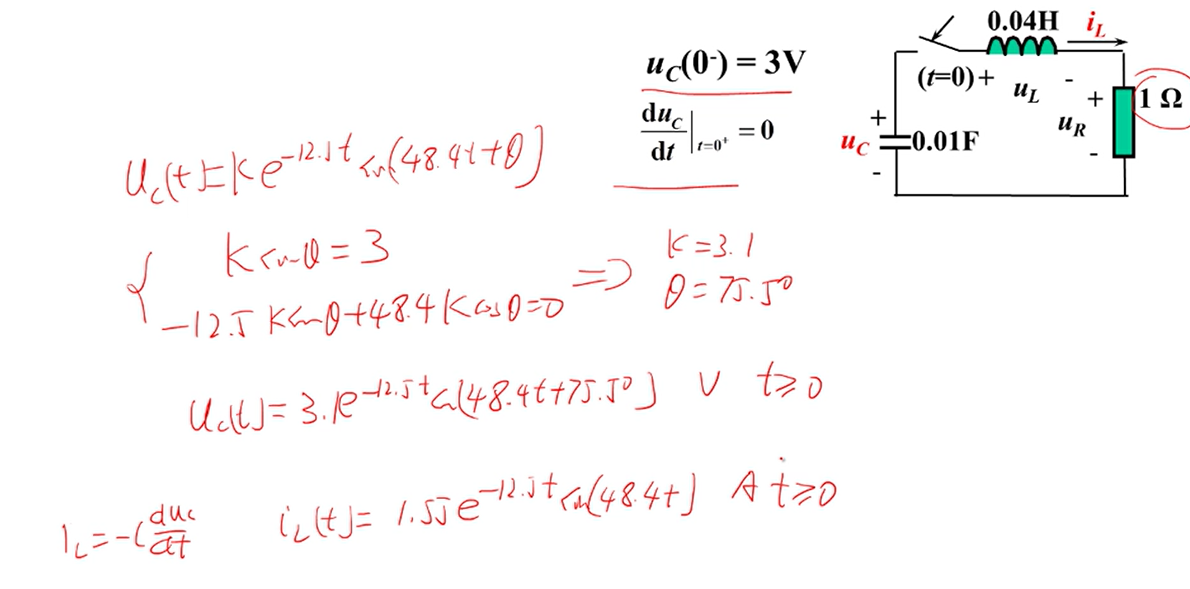 0.04H i_L
u_C(0⁻) = 3V
(t=0) + u_L -
du_C/dt |_{t=0⁺} = 0
+ u_R - 1 Ω
+ u_C - 0.01F
u_c(t)=Ke^{-12.5t} sin(48.4t+θ)
{ K sinθ = 3
-12.5 K sinθ+48.4 K cosθ=0 ⇒ K=3.1
θ=75.5°
u_c(t)=3.1e^{-12.5t} sin(48.4t+75.5°) V t≥0
i_L=-C du_c/dt i_L(t)= 1.55e^{-12.5t} sin(48.4t) A t≥0